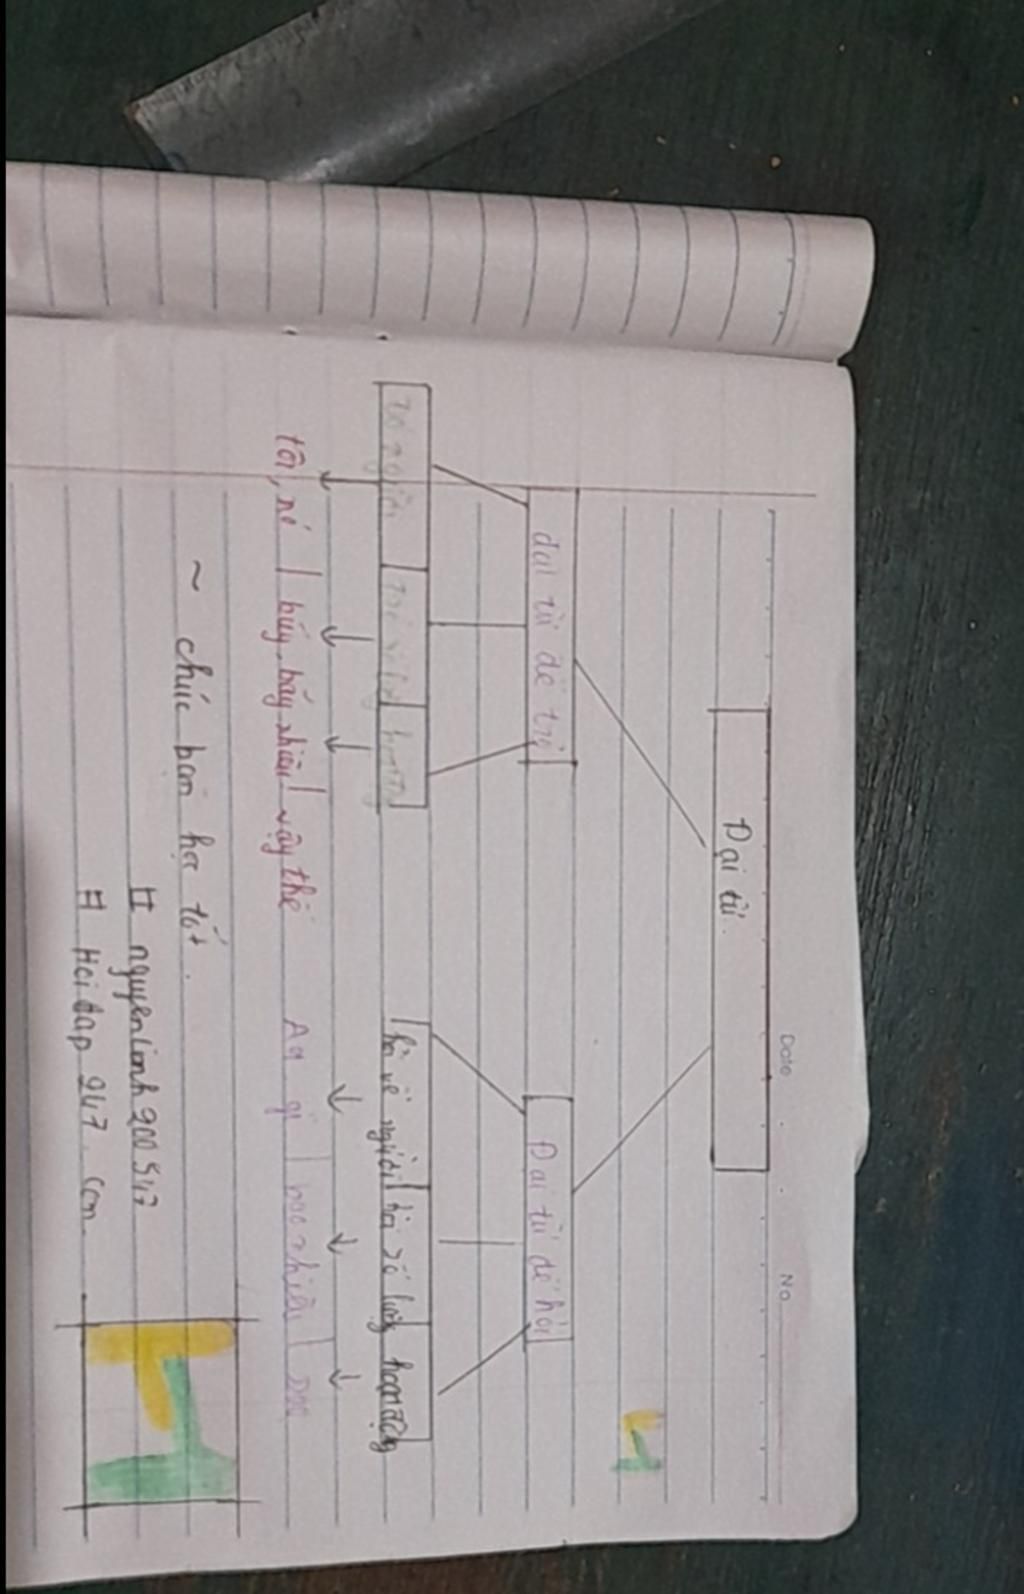 Date
No
Đại từ
đại từ để trỏ
Đại từ để hỏi
hỏi về người hỏi số lượng hoạt động
tôi, nó bấy, bấy nhiêu vậy thế
Ai gì bao nhiêu sao
~ chúc bạn học tốt.
# nguyenlinh200547
# Hoidap 247. com.